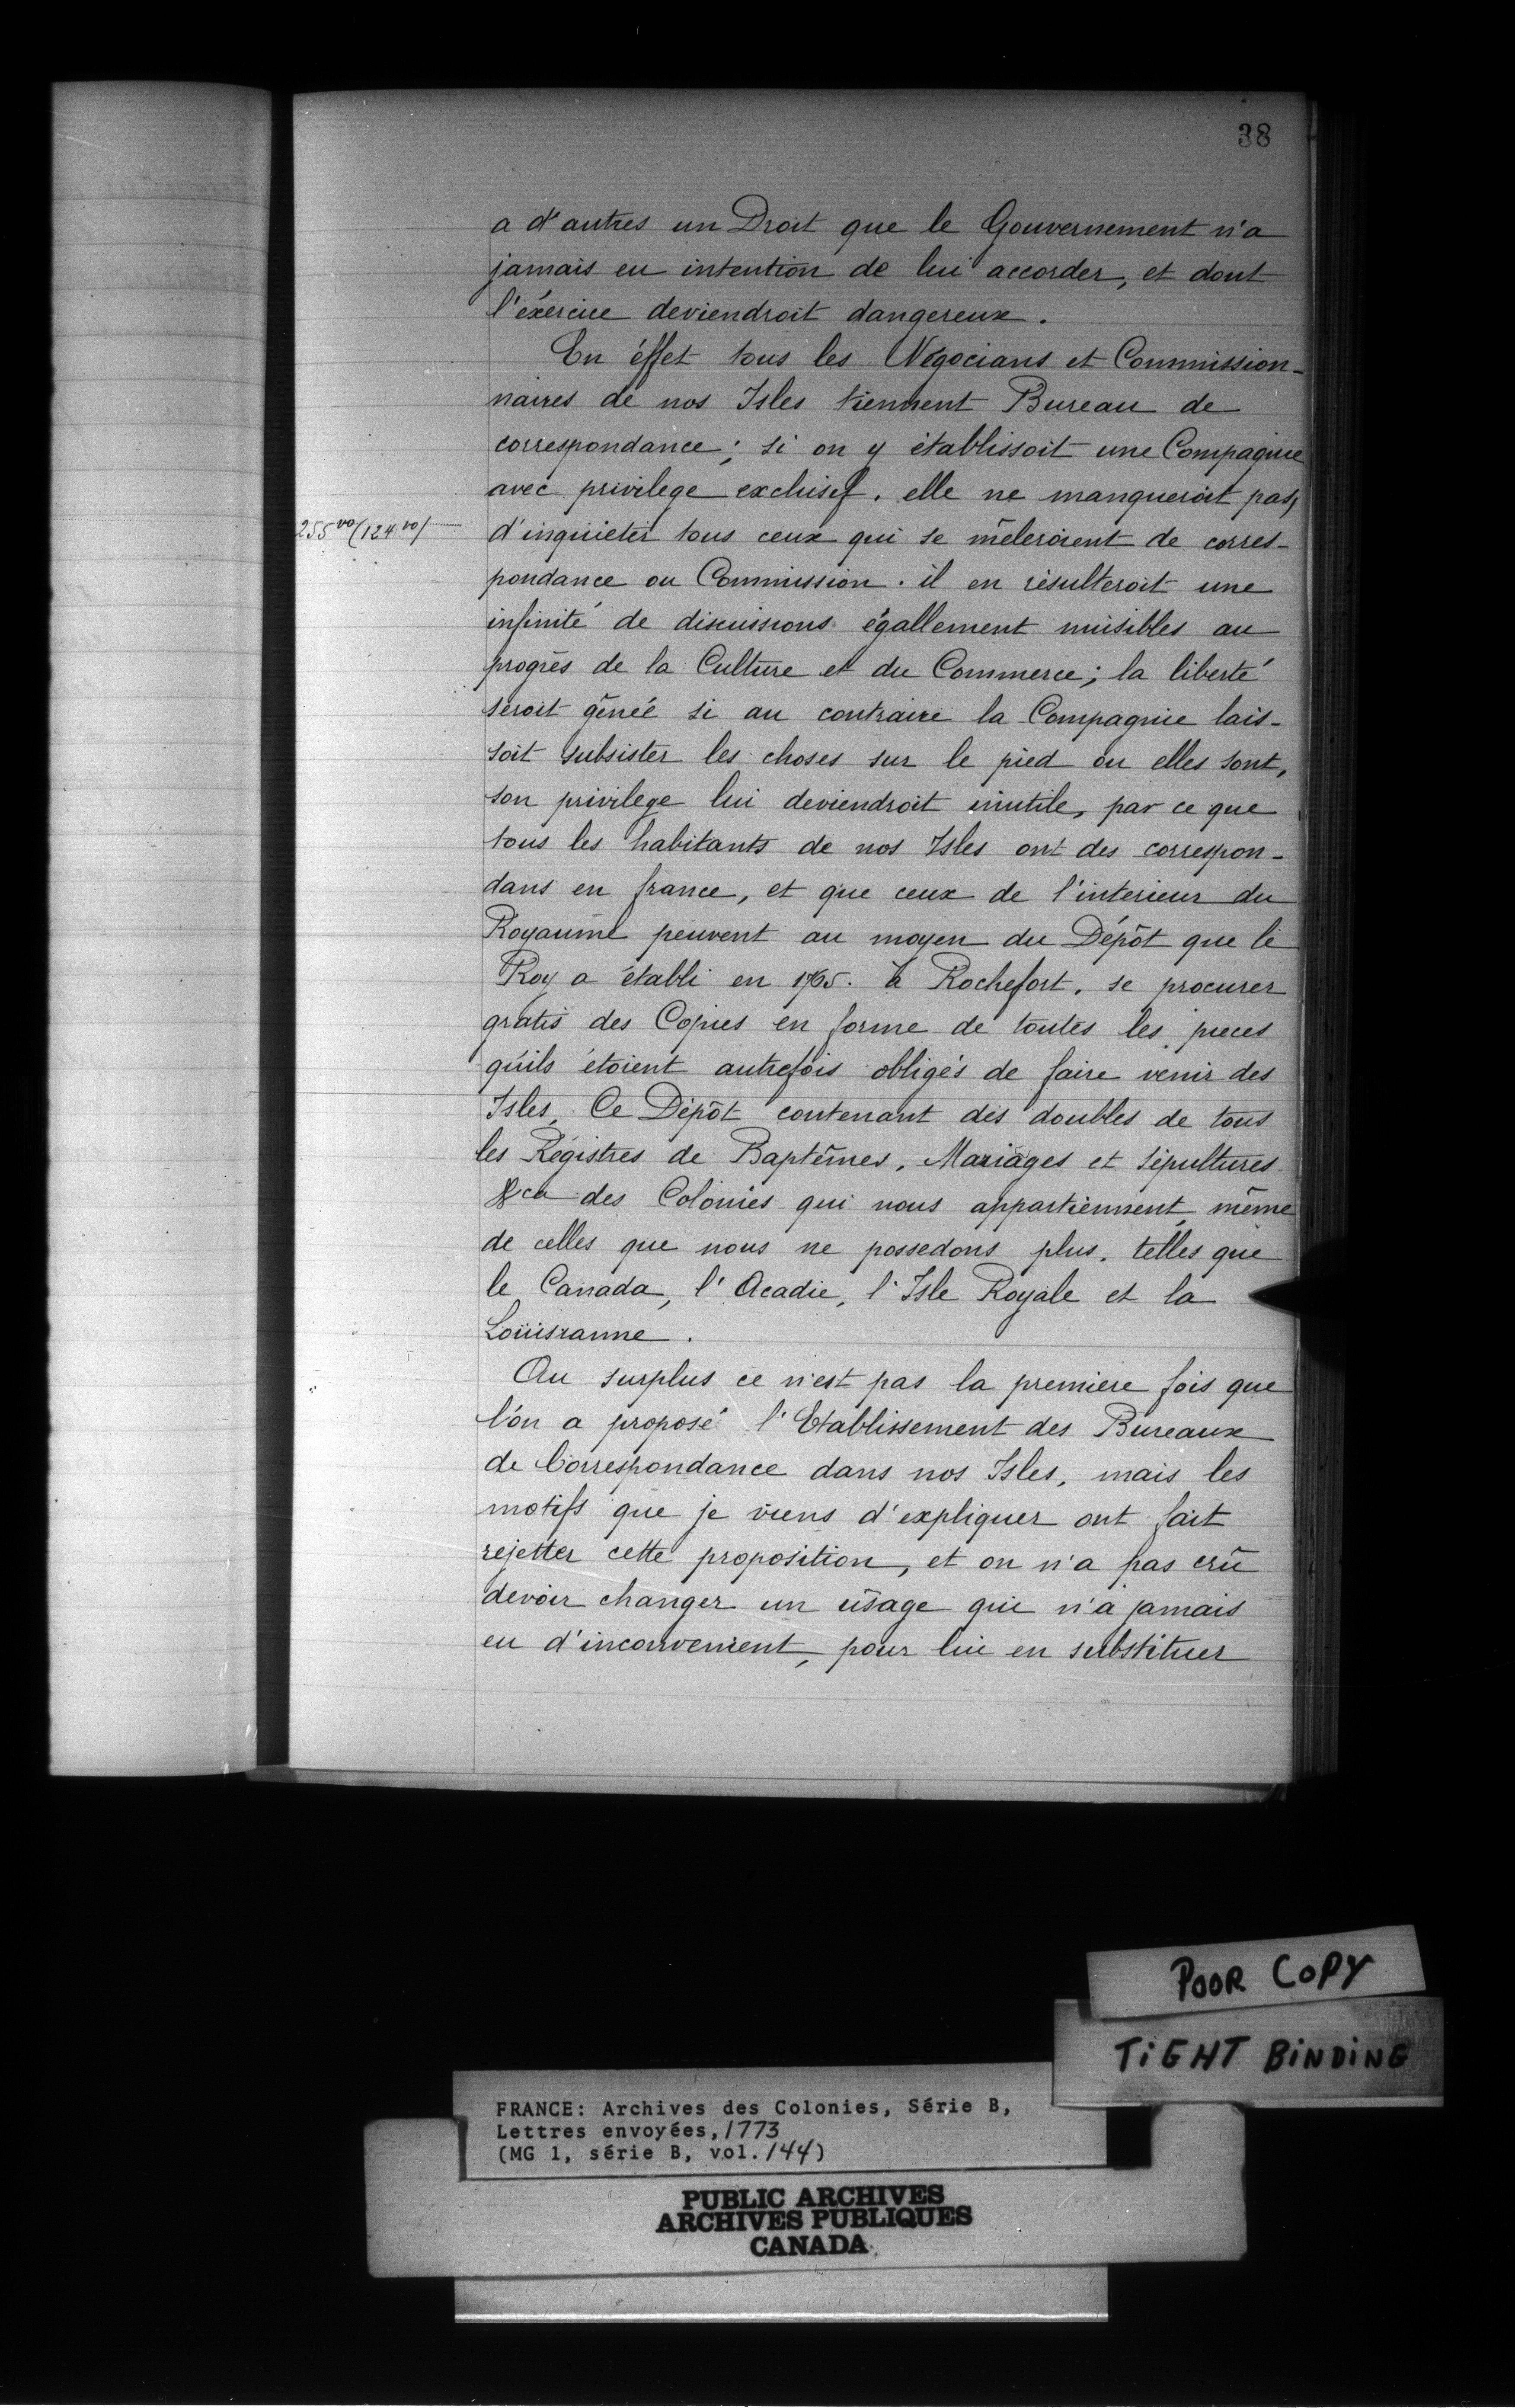 38
a d'autres un Droit que le Gouvernement n'a
jamais eu intention de lui accorder, et dont
l'éxercice deviendroit dangereux.
En éffet tous les Négocians et Commission-
naires de nos Isles tiennent Bureau de
correspondance; si on y établissoit une Compagnie
avec privilege exclusif. elle ne manqueroit pas,
255 vo (124 vo)
d'inquiéter tous ceux qui se mêleroient de corres-
pondance ou Commission. il en résulteroit une
infinité de discussions égallement nuisibles au
progrès de la Culture et du Commerce; la liberté
seroit gênée si au contraire la Compagnie lais-
soit subsister les choses sur le pied ou elles sont,
son privilege lui deviendroit inutile, par ce que
tous les habitants de nos Isles ont des correspon-
dans en france, et que ceux de l'interieur du
Royaume peuvent au moyen du Dépôt que le
Roy a établi en 1765. à Rochefort. se procurer
gratis des Copies en forme de toutes les pieces
qu'ils étoient autrefois obligés de faire venir des
Isles, Ce Dépôt contenant des doubles de tous
les Régistres de Baptêmes, Mariages et sépultures
&ca des Colonies qui nous appartiennent, même
de celles que nous ne possedons plus. telles que
le Canada, l'Acadie, l'Isle Royale et la
Loüisianne.
Au surplus ce n'est pas la premiere fois que
l'on a proposé l'Etablissement des Bureaux
de Correspondance dans nos Isles, mais les
motifs que je viens d'expliquer ont fait
rejetter cette proposition, et on n'a pas crû
devoir changer un usage qui n'a jamais
eu d'inconvenient, pour lui en substituer
POOR COPY
TIGHT BINDING
FRANCE: Archives des Colonies, Série B,
Lettres envoyées, 1773
(MG 1, série B, vol. 144)
PUBLIC ARCHIVES
ARCHIVES PUBLIQUES
CANADA